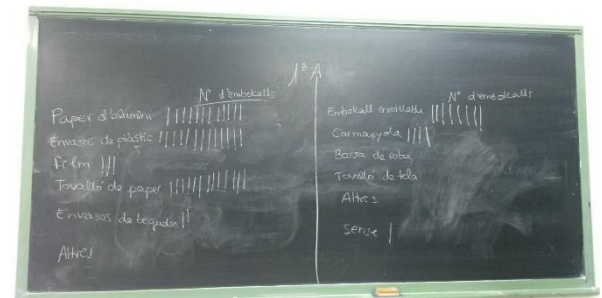 1r A
Nº d'embolcalls
Paper d'alumini |||||||||||
Envasos de plàstic ||||||||||||
film |||
Tovalló de paper ||||||||||||
Envasos de begudes ||
Altres
Nº d'embolcalls
Embolcall reutilitzable ||||||||
Carmanyola ||||
Bossa de roba
Tovalló de tela
Altres
sense |